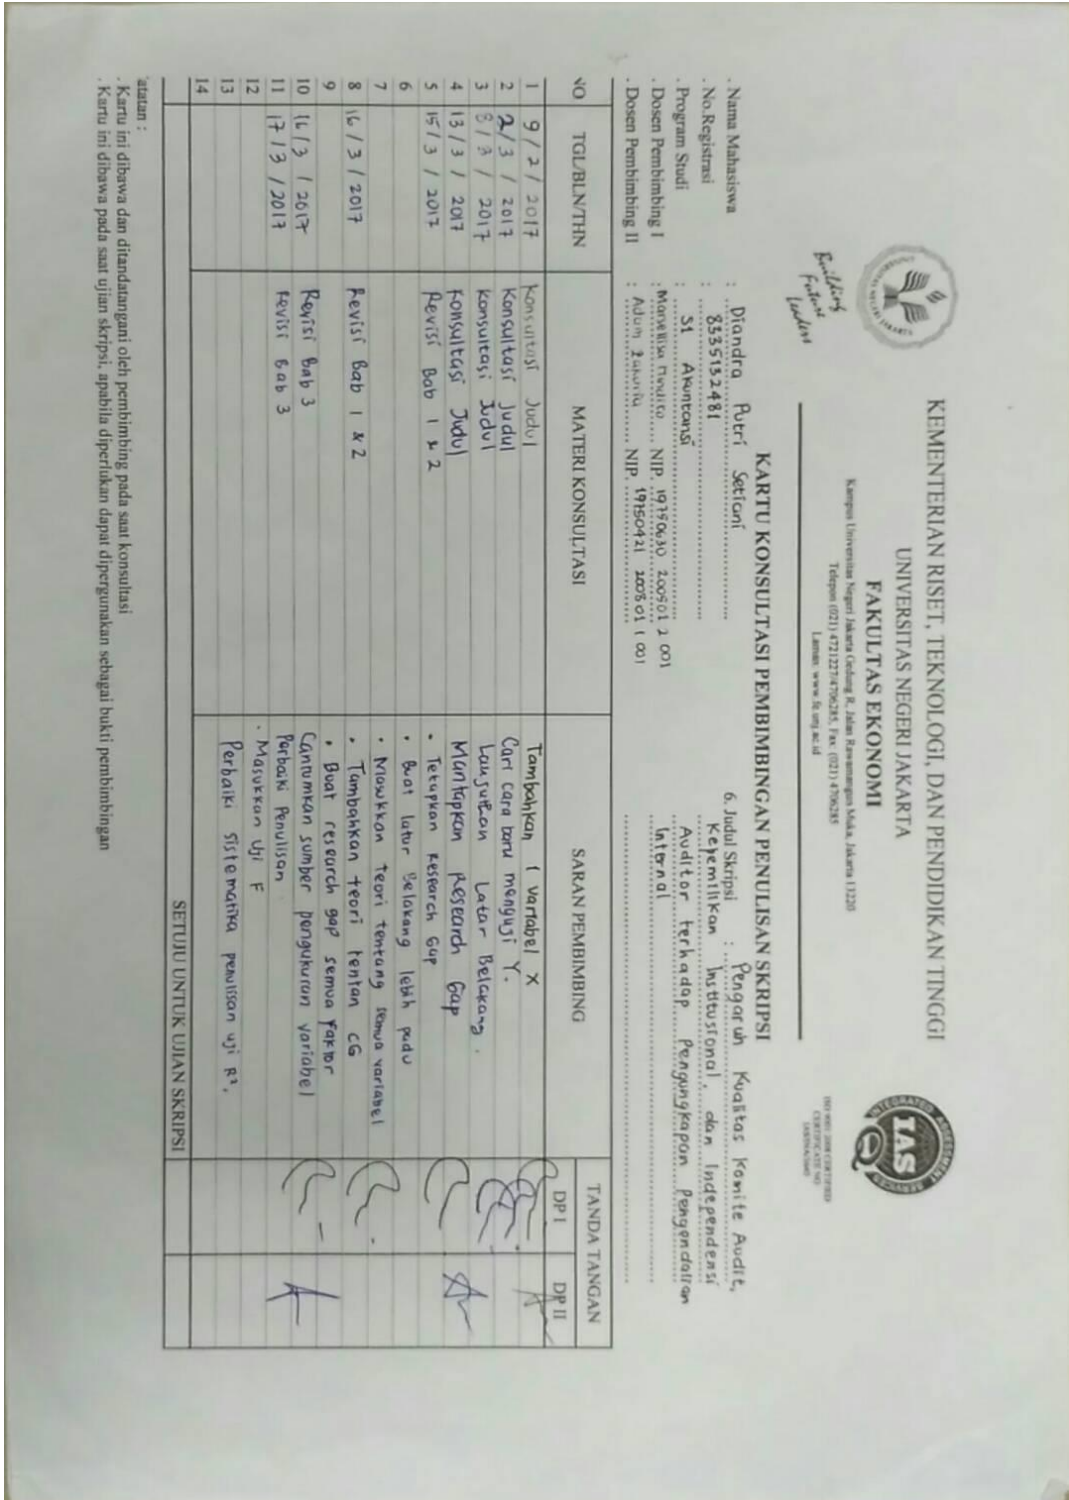 KEMENTERIAN RISET, TEKNOLOGI, DAN PENDIDIKAN TINGGI
UNIVERSITAS NEGERI JAKARTA
FAKULTAS EKONOMI
Kampus Universitas Negeri Jakarta Gedung R, Jalan Rawamangun Muka, Jakarta 13220
Telepon (021) 4721227/4706285, Fax: (021) 4706285
Laman: www.fe.unj.ac.id
Building
Future
Leaders
INTEGRATED ASSESSMENT SERVICES
IAS
ISO 9001:2008 CERTIFIED
CERTIFICATE NO
KARTU KONSULTASI PEMBIMBINGAN PENULISAN SKRIPSI
. Nama Mahasiswa : Diandra Putri Setiani
. No.Registrasi : 8335132481
. Program Studi : S1 Akuntansi
. Dosen Pembimbing I : NIP. 19750630 200501 2 001
. Dosen Pembimbing II : NIP. 19750421 200801 1 001
6. Judul Skripsi : Pengaruh Kualitas Komite Audit,
Kepemilikan Institusional, dan Independensi
Auditor terhadap Pengungkapan Pengendalian
Internal
NO TGL/BLN/THN MATERI KONSULTASI SARAN PEMBIMBING TANDA TANGAN
DP I DP II
1 9/2/2017 Konsultasi Judul Tambahkan 1 variabel X
2 2/3/2017 Konsultasi Judul Cari cara baru menguji Y.
3 8/3/2017 Konsultasi Judul Lanjutkan Latar Belakang.
4 13/3/2017 Konsultasi Judul Mantapkan Research Gap
5 15/3/2017 Revisi Bab 1 & 2 • Tetapkan Research Gap
6 • Buat latar Belakang lebih padu
7 • Masukkan teori tentang semua variabel
8 16/3/2017 Revisi Bab 1 & 2 • Tambahkan teori tentan CG
9 • Buat research gap semua faktor
10 16/3/2017 Revisi Bab 3 Cantumkan sumber pengukuran variabel
11 17/3/2017 Revisi Bab 3 Perbaiki Penulisan
12 • Masukkan Uji F
13 Perbaiki sistematika penulisan uji R².
14
SETUJU UNTUK UJIAN SKRIPSI
atatan :
. Kartu ini dibawa dan ditandatangani oleh pembimbing pada saat konsultasi
. Kartu ini dibawa pada saat ujian skripsi, apabila diperlukan dapat dipergunakan sebagai bukti pembimbingan